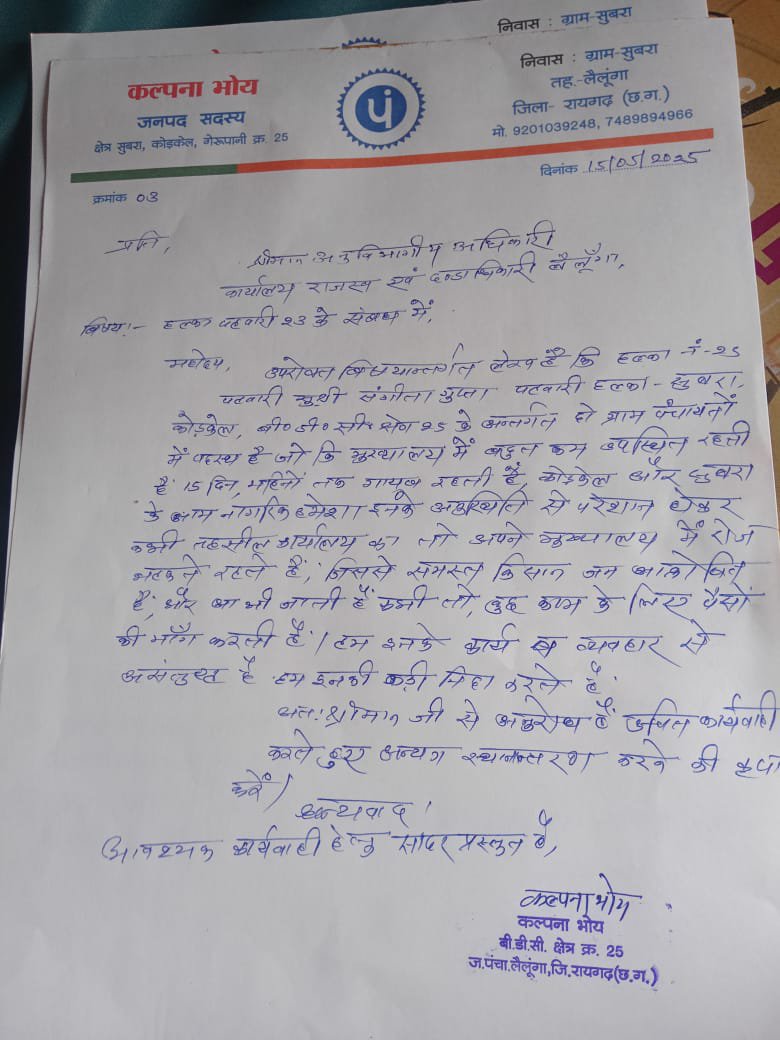 निवास : ग्राम-सुबरा
कल्पना भोय
जनपद सदस्य
क्षेत्र सुबरा, कोड़केल, गेरूपानी क्र. 25
पं
निवास : ग्राम-सुबरा
तह.-लैलूंगा
जिला- रायगढ़ (छ.ग.)
मो. 9201039248, 7489894966
क्रमांक 03
दिनांक 15/05/2025
प्रति,
श्रीमान अनुविभागीय अधिकारी
कार्यालय राजस्व एवं दण्डाधिकारी लैलूँगा,
विषय:- हल्का पटवारी 23 के संबंध में,
महोदय, उपरोक्त विषयान्तर्गत लेख है कि हल्का नं-25
पटवारी सुश्री संगीता गुप्ता पटवारी हल्का - सुबरा,
कोड़केल, बी०डी०सी० क्षेत्र 25 के अन्तर्गत दो ग्राम पंचायतों
में पदस्थ है जो कि मुख्यालय में बहुत कम उपस्थित रहती
है 15 दिन, महिनों तक गायब रहती है, कोड़केल और सुबरा
के आम नागरिक हमेशा इनके अनुपस्थिति से परेशान होकर
कभी तहसील कार्यालय का तो अपने मुख्यालय में रोज
भटकते रहते हैं, जिससे समस्त किसान जन आक्रोषित
है, और आ भी जाती है कभी तो, कुछ काम के लिए पैसों
की माँग करती है। हम इनके कार्य व्यवहार से
असंतुष्ट है हम इनकी कड़ी निंदा करते है
अतः श्रीमान जी से अनुरोध है उचित कार्यवाही
करते हुए अन्यत्र स्थानान्तरण करने की कृपा
करें।
धन्यवाद।
आवश्यक कार्यवाही हेतु सादर प्रस्तुत है,
कल्पना भोय
कल्पना भोय
बी.डी.सी. क्षेत्र क्र. 25
ज.पंचा.लैलूंगा,जि.रायगढ़(छ.ग.)